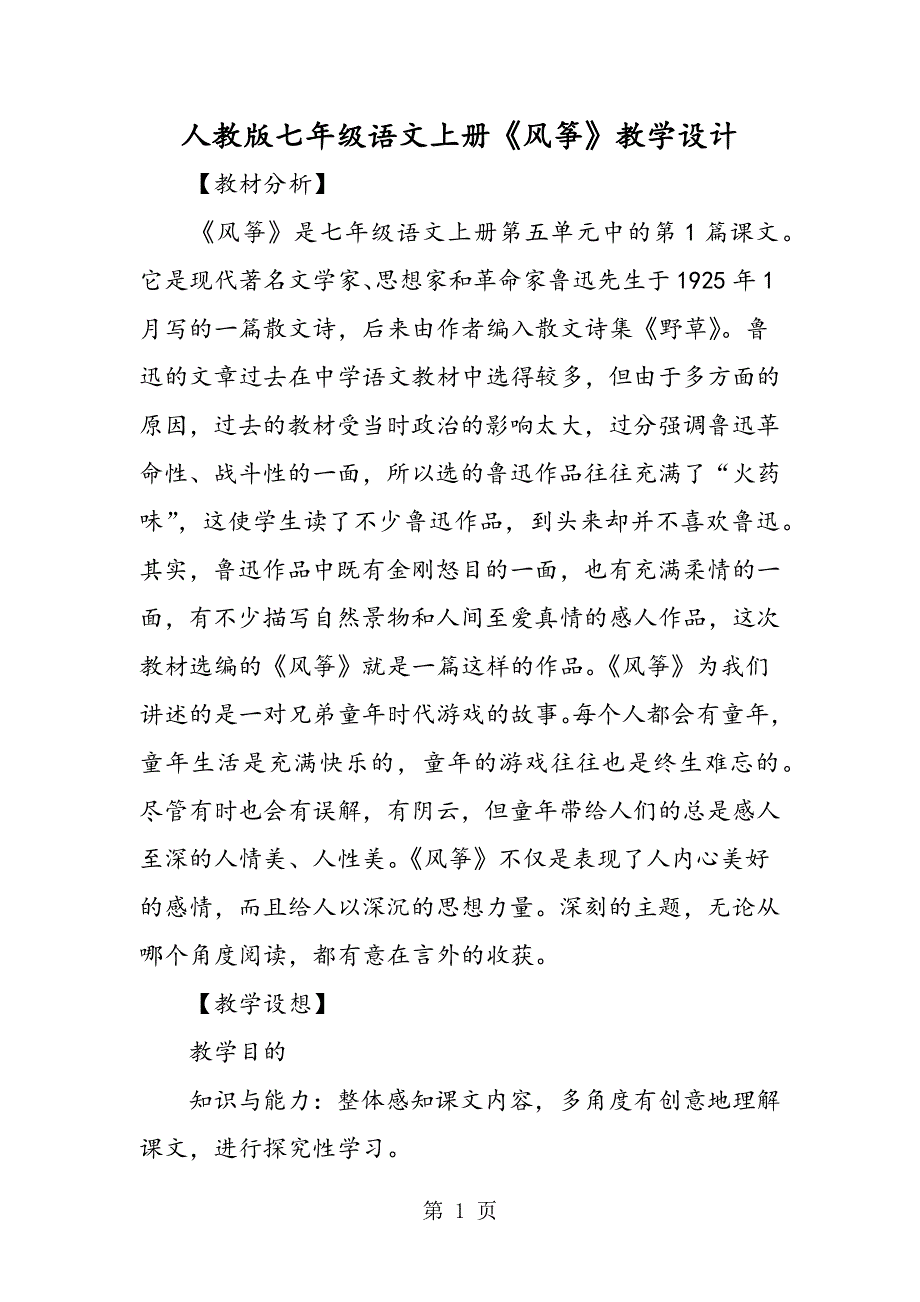 人教版七年级语文上册《风筝》教学设计
【教材分析】
《风筝》是七年级语文上册第五单元中的第1篇课文。
它是现代著名文学家、思想家和革命家鲁迅先生于1925年1
月写的一篇散文诗，后来由作者编入散文诗集《野草》。鲁
迅的文章过去在中学语文教材中选得较多，但由于多方面的
原因，过去的教材受当时政治的影响太大，过分强调鲁迅革
命性、战斗性的一面，所以选的鲁迅作品往往充满了“火药
味”，这使学生读了不少鲁迅作品，到头来却并不喜欢鲁迅。
其实，鲁迅作品中既有金刚怒目的一面，也有充满柔情的一
面，有不少描写自然景物和人间至爱真情的感人作品，这次
教材选编的《风筝》就是一篇这样的作品。《风筝》为我们
讲述的是一对兄弟童年时代游戏的故事。每个人都会有童年，
童年生活是充满快乐的，童年的游戏往往也是终生难忘的。
尽管有时也会有误解，有阴云，但童年带给人们的总是感人
至深的人情美、人性美。《风筝》不仅是表现了人内心美好
的感情，而且给人以深沉的思想力量。深刻的主题，无论从
哪个角度阅读，都有意在言外的收获。
【教学设想】
教学目的
知识与能力：整体感知课文内容，多角度有创意地理解
课文，进行探究性学习。
第 1 页